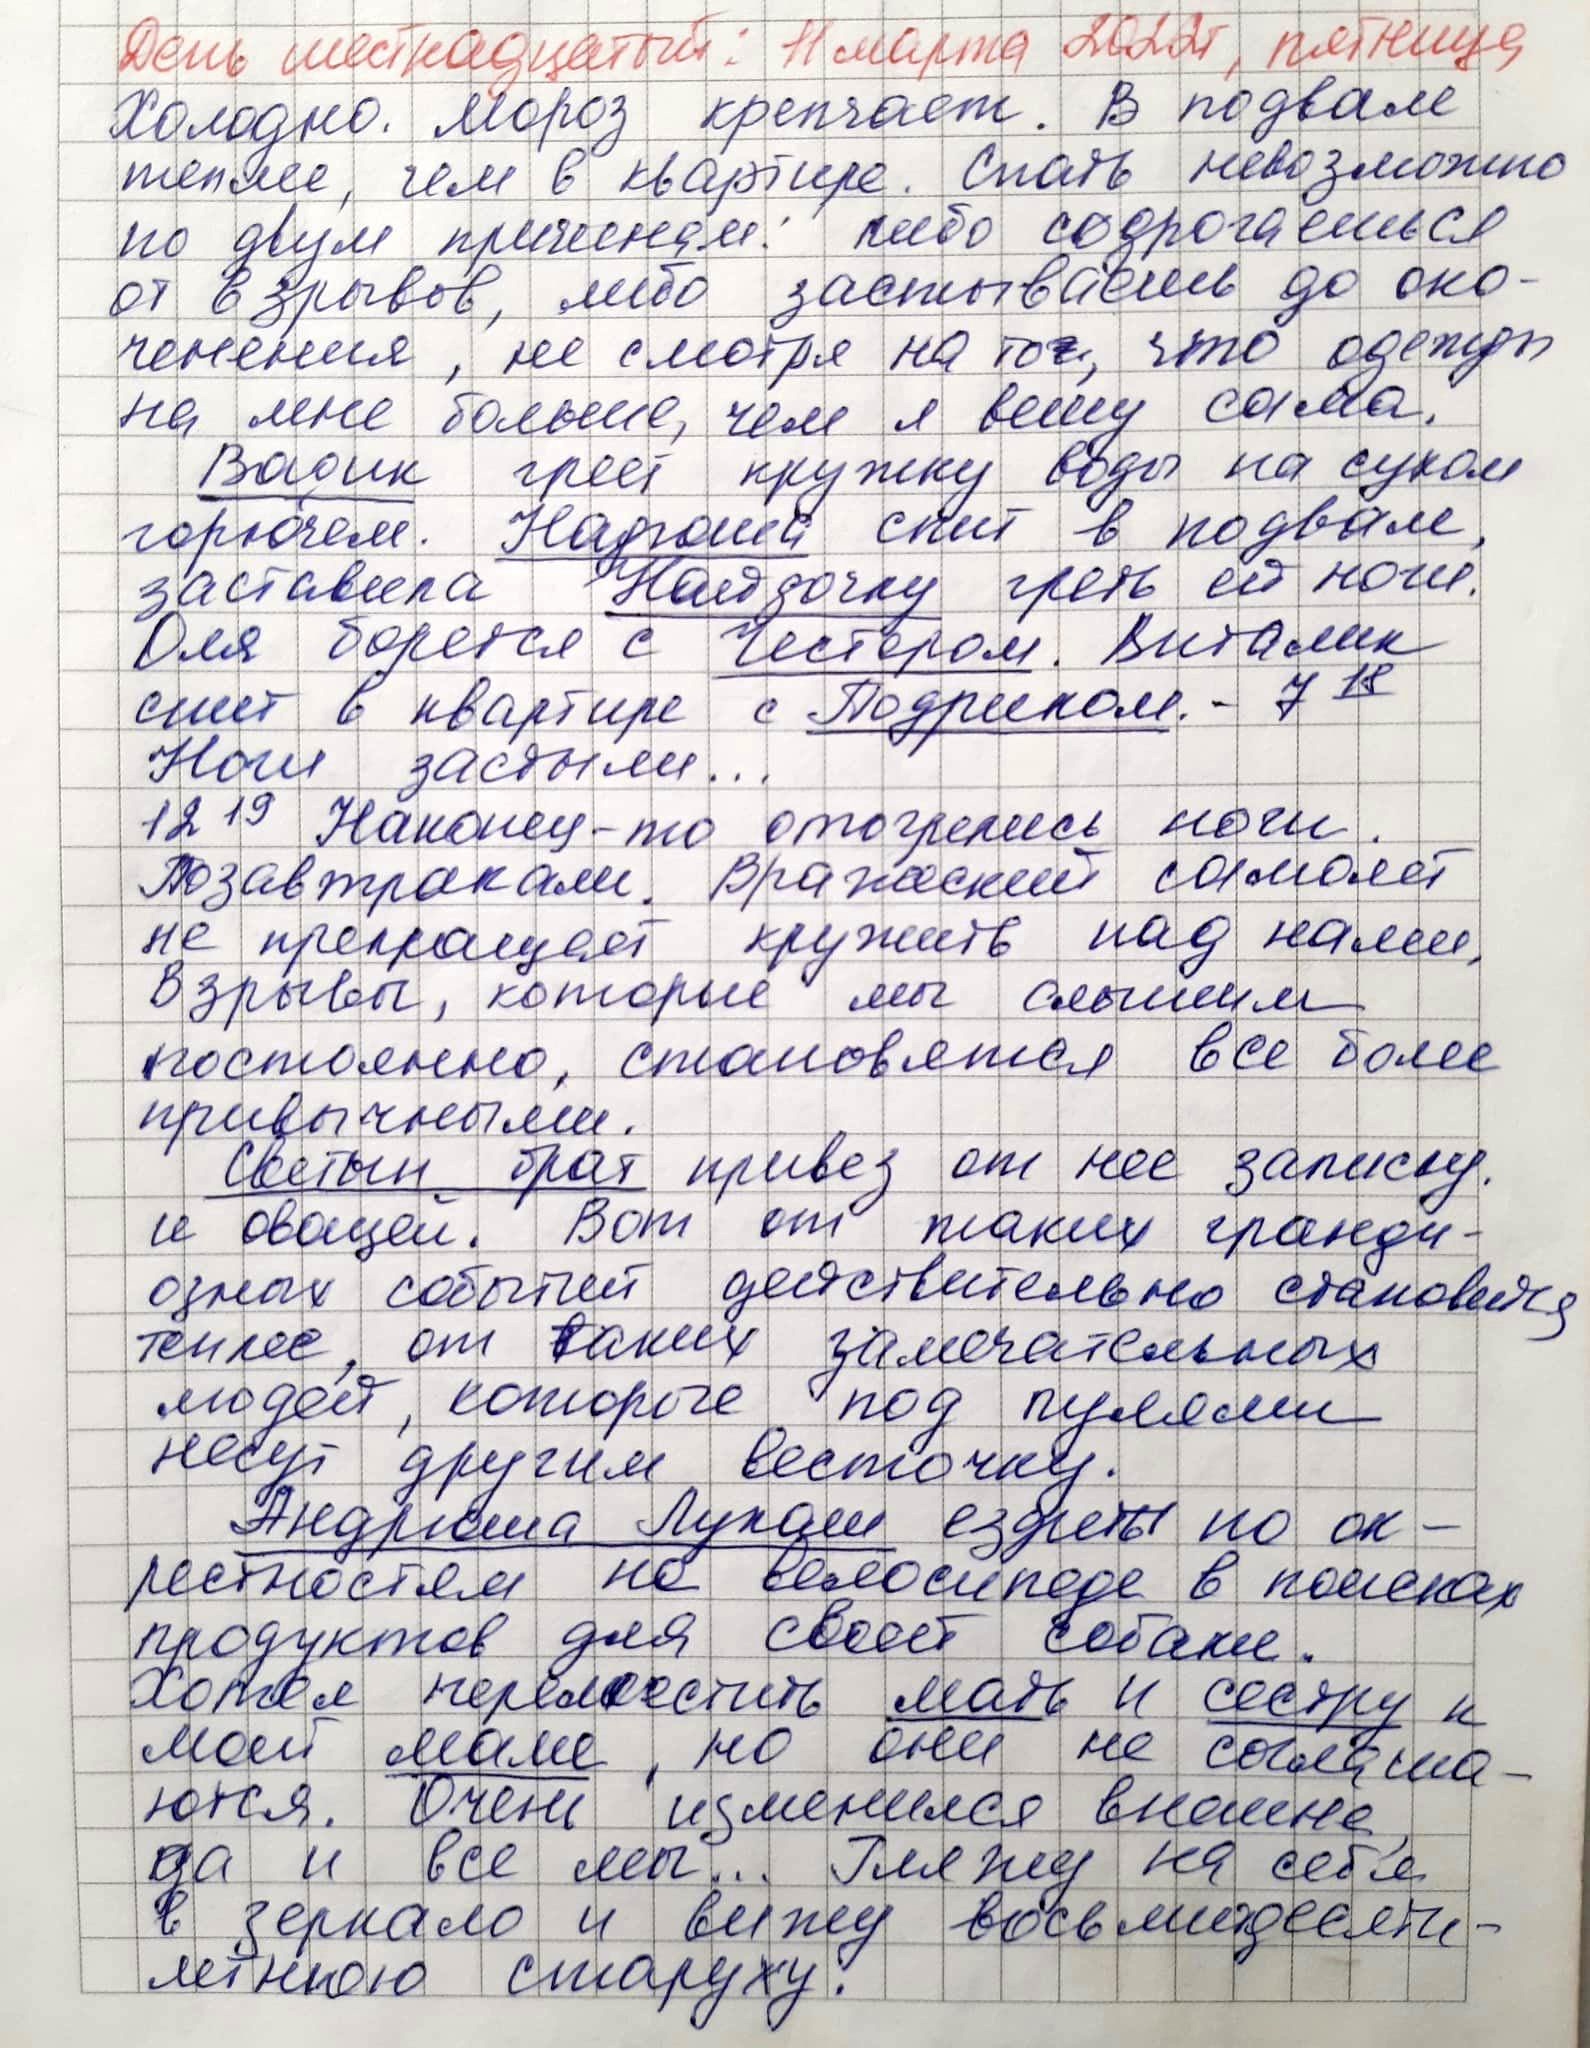 День шестнадцатый: 11 марта 2022г, пятница
Холодно. Мороз крепчает. В подвале
теплее, чем в квартире. Спать невозможно
по двум причинам: либо содрогаешься
от взрывов, либо застываешь до око-
ченения, не смотря на то, что одежды
на мне больше, чем я вешу сама.
Вадик греет кружку воды на сухом
горючем. спит в подвале,
заставила греть ей ноги.
Оля борется с Честером. Виталик
спит в квартире с Подриком. - 7 18
Ноги застыли...
12 19 Наконец-то отогрелись ноги.
Позавтракали. Вражеский самолет
не прекращает кружить над нами,
Взрывы, которые мы слышим
постоянно, становятся все более
привычными.
Светын брат привез от нее записку.
и овощей. Вот от таких гранди-
озных событий действительно становится
теплее, от таких замечательных
людей, которые под пулями
несут другим весточку.
Андрюша Лукаш ездит по ок-
рестностям на велосипеде в поисках
продуктов для своей собаки.
Хотел переместить мать и сестру к
моей маме, но они не соглаша-
ются. Очень изменился внешне,
да и все мы... Гляжу на себя
в зеркало и вижу восьмидесяти-
летнюю старуху.